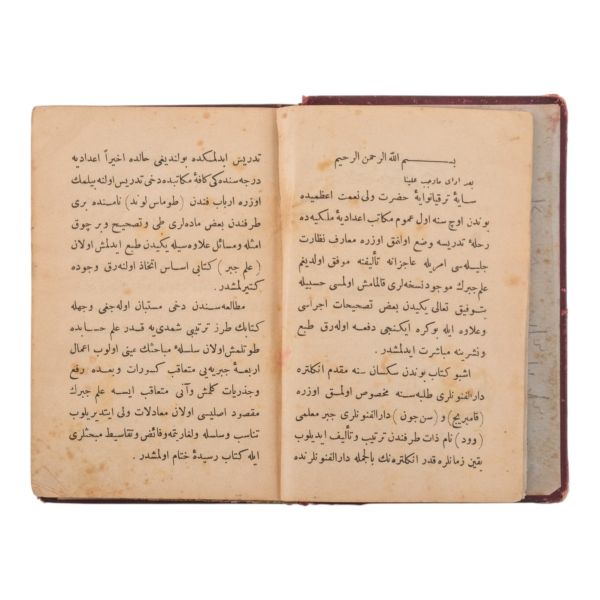 بسم الله الرحمن الرحيم
بعد ادای ماوجب علینا
سایهٔ ترقیاتوایهٔ حضرت ولی نعمت اعظمیده
بوندن اوچ سنه اول عموم مکاتب اعدادیهٔ ملکیه‌ده
رحلهٔ تدریسه وضع اولنمق اوزره معارف نظارت
جلیله‌سی امریله عاجزانه تألیفنه موفق اولدیغم
علم جبرك موجود نسخه‌لری قالمامش اولمسی حسبیله
بتوفیق تعالی یکیدن بعض تصحیحات اجراسی
وعلاوه ایله بوکره ایکنجی دفعه اوله‌رق طبع
ونشرینه مباشرت ایدلمشدر.
اشبو کتاب بوندن سکسان سنه مقدم انکلتره
دارالفنونلری طلبه‌سنه مخصوص اولمق اوزره
(قامبریج) و (سن جون) دارالفنونلری جبر معلمی
(وود) نام ذات طرفندن ترتیب وتألیف ایدیلوب
یقین زمانلره قدر انکلتره‌نك بالجمله دارالفنونلرنده
تدریس ایدلمکده بولندیغی حالده اخیراً اعدادیه
درجه‌سنده‌کی کافهٔ مکاتبده دخی تدریس اولنه‌بیلمك
اوزره ارباب فندن (طوماس لوند) نامنده بری
طرفندن بعض ماده‌لری طی وتصحیح وبر چوق
امثله ومسائل علاوه‌سیله یکیدن طبع ایدلمش اولان
(علم جبر) کتابی اساس اتخاذ اولنه‌رق وجوده
کتیرلمشدر.
مطالعه‌سندن دخی مستبان اوله‌جغی وجهله
کتابك طرز ترتیبی شمدی‌یه قدر علم حسابده
طوتلمش اولان سلسلهٔ مباحثك عینی اولوب اعمال
اربعهٔ جبریه‌یی متعاقب کسورات وبعده رفع
وجذریات کلمش وآنی متعاقب ایسه علم جبرك
مقصود اصلیسی اولان معادلات ولی ایتدیریلوب
تناسب وسلسله ولغاریتمه وفائض وتقاسیط مبحثلری
ایله کتاب رسیدهٔ ختام اولمشدر.